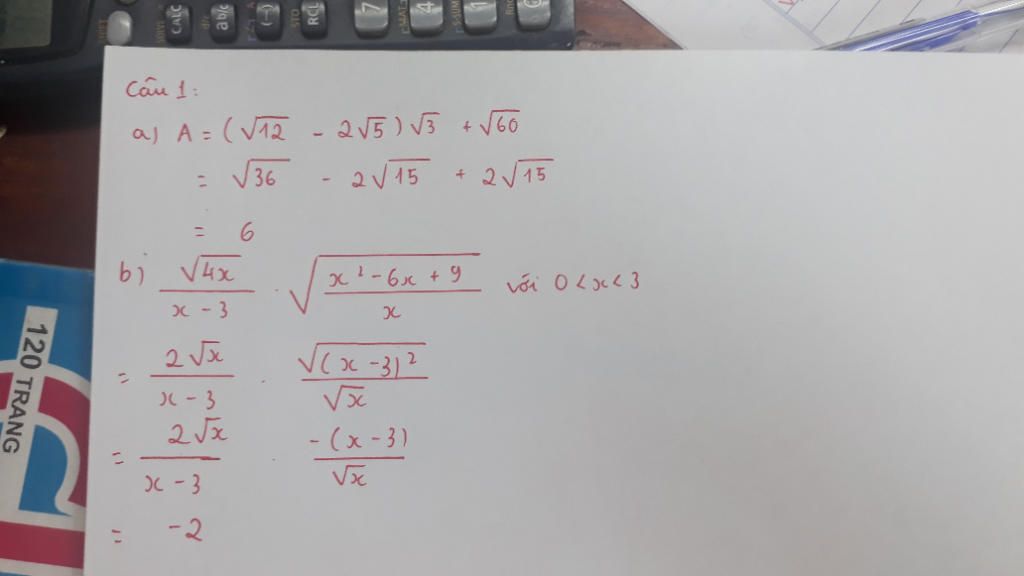 CALC
abc
(-)
STO
RCL
7
4
1
0
120 TRANG
Câu 1:
a) A = (√12 - 2√5)√3 + √60
= √36 - 2√15 + 2√15
= 6
b) √(4x)/(x - 3) · √((x² - 6x + 9)/x) với 0 < x < 3
= 2√x/(x - 3) · √((x - 3)²)/√x
= 2√x/(x - 3) · -(x - 3)/√x
= -2